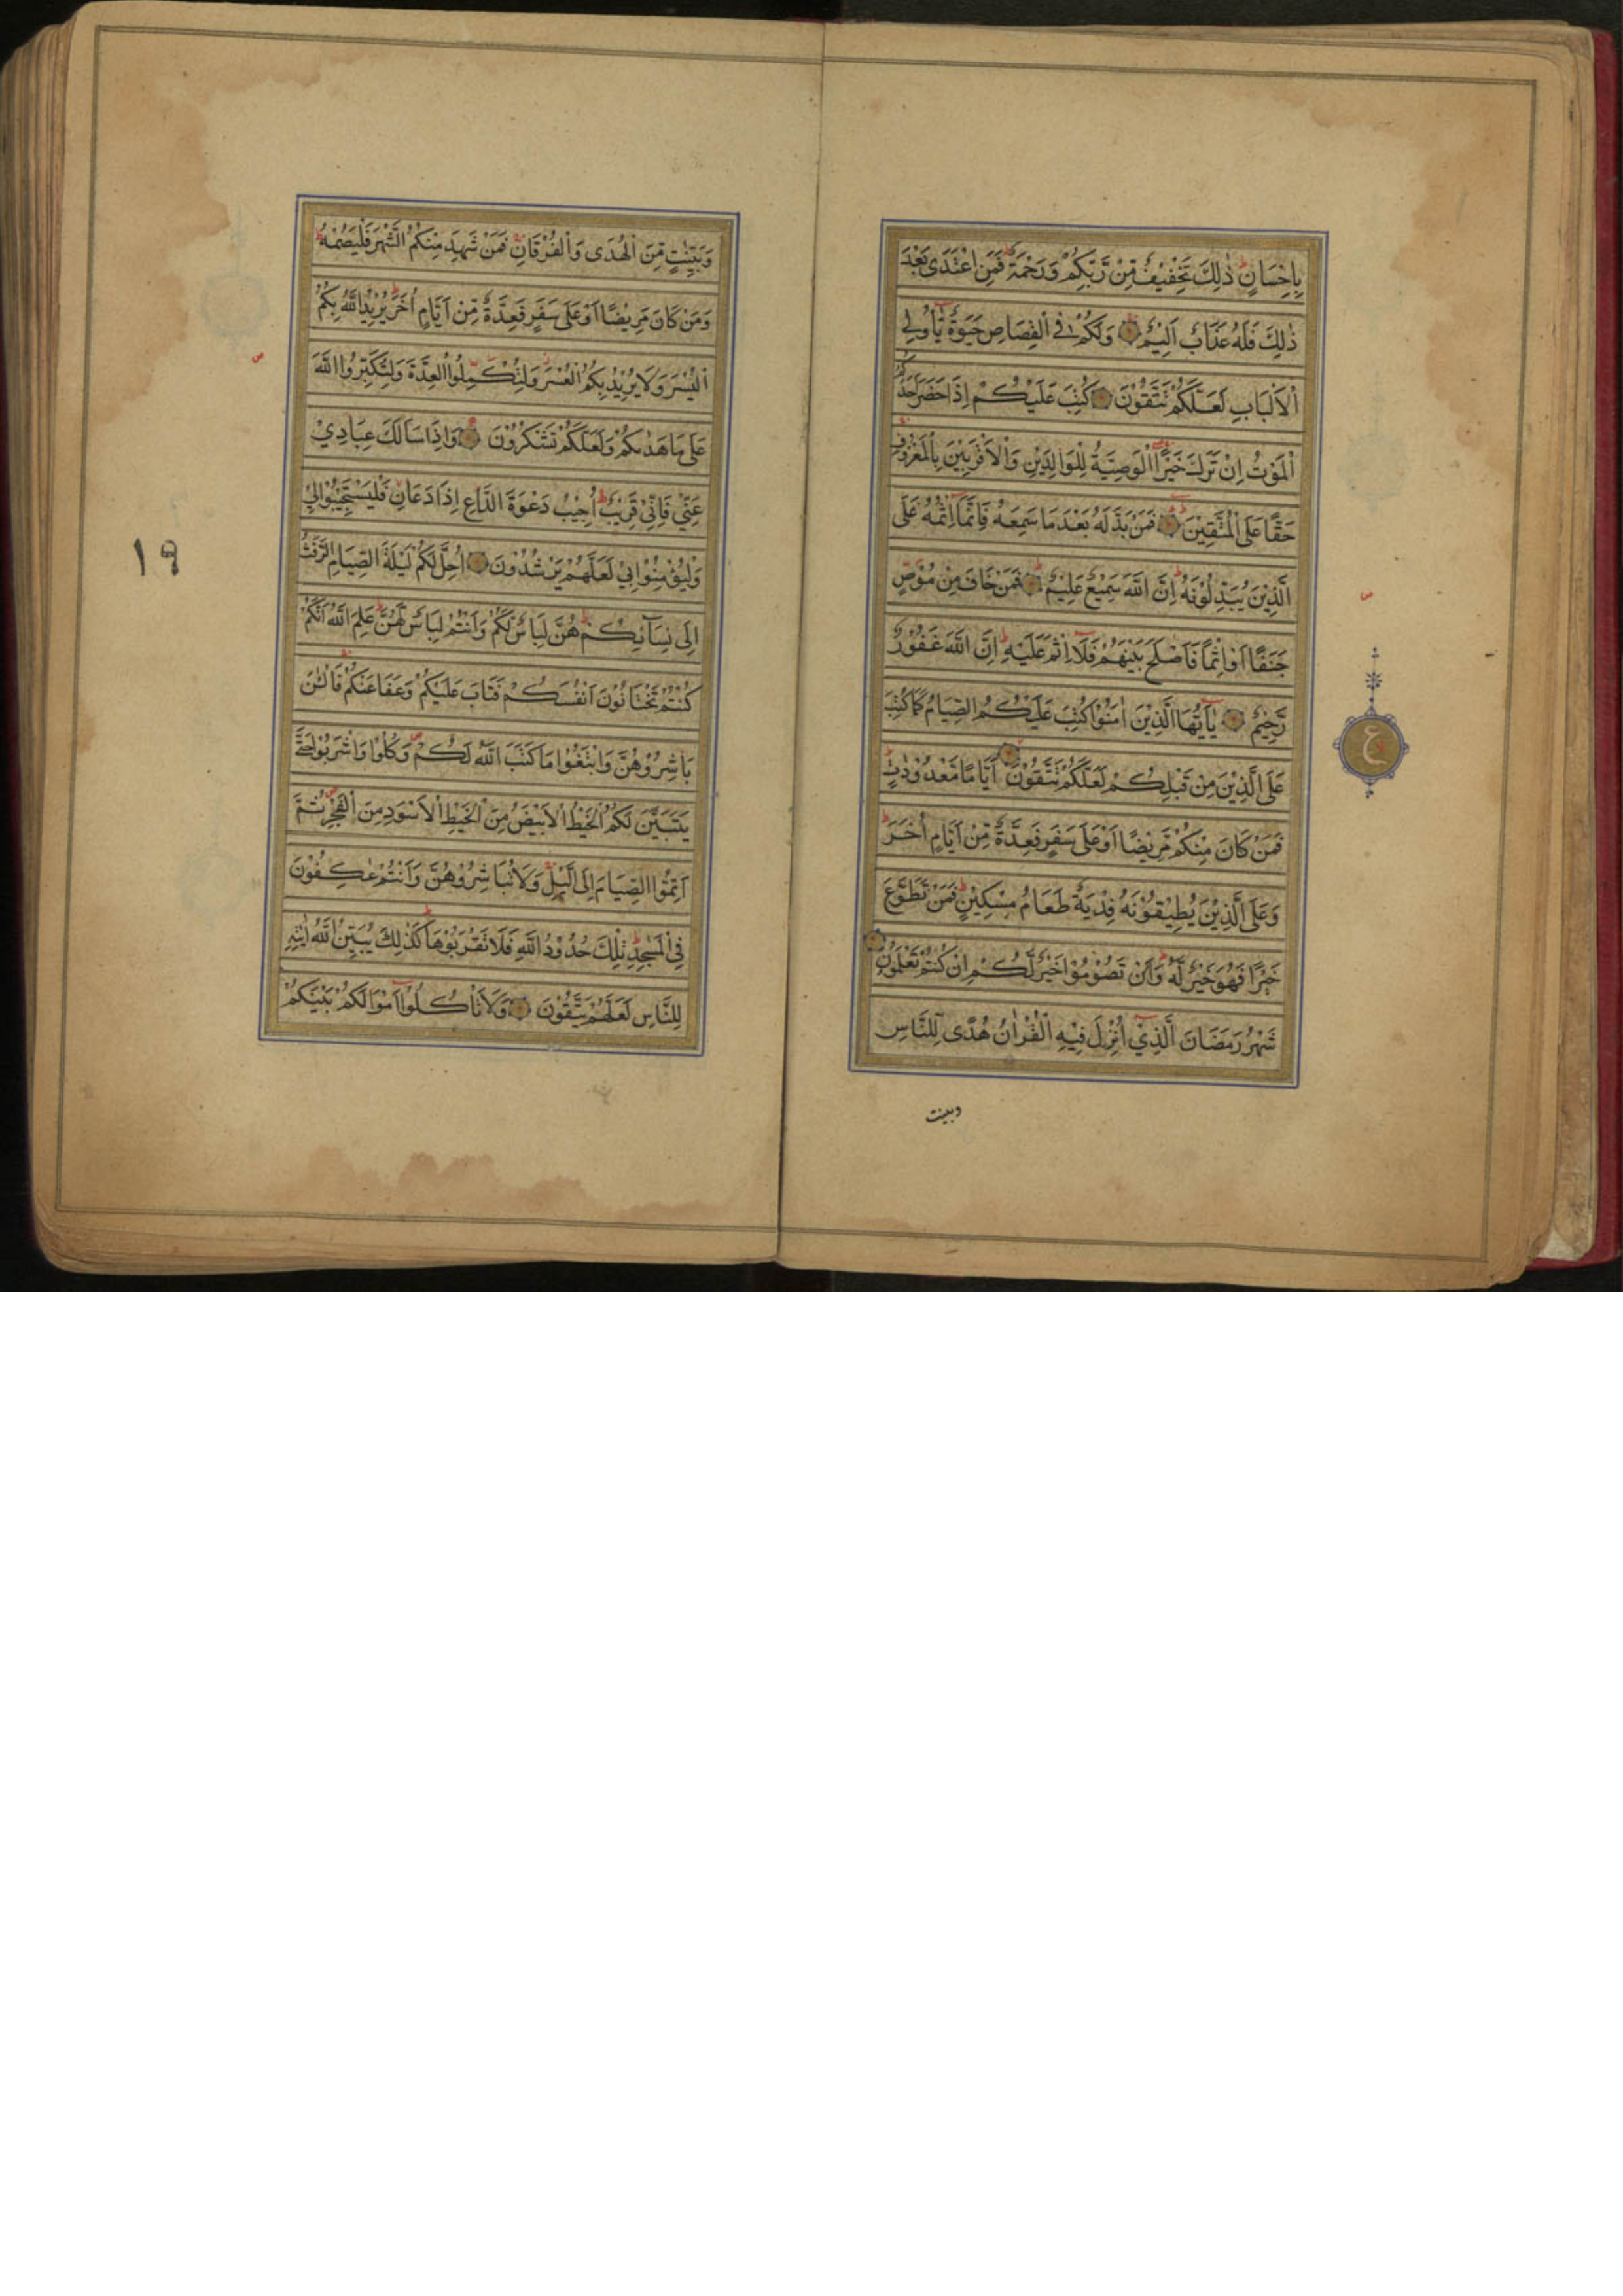 بِاِحْسَانٍ ط ذٰلِكَ تَخْفِيْفٌ مِّنْ رَّبِّكُمْ وَرَحْمَةٌ ط فَمَنِ اعْتَدٰى بَعْدَ
ذٰلِكَ فَلَهُ عَذَابٌ اَلِيْمٌ وَلَكُمْ فِي الْقِصَاصِ حَيٰوةٌ يّٰاُولِي
الْاَلْبَابِ لَعَلَّكُمْ تَتَّقُوْنَ كُتِبَ عَلَيْكُمْ اِذَا حَضَرَ اَحَدَكُمُ
الْمَوْتُ اِنْ تَرَكَ خَيْرًا الْوَصِيَّةُ لِلْوَالِدَيْنِ وَالْاَقْرَبِيْنَ بِالْمَعْرُوْفِ
حَقًّا عَلَى الْمُتَّقِيْنَ ط فَمَنْ بَدَّلَهُ بَعْدَ مَا سَمِعَهُ فَاِنَّمَا اِثْمُهُ عَلَى
الَّذِيْنَ يُبَدِّلُوْنَهُ ط اِنَّ اللّٰهَ سَمِيْعٌ عَلِيْمٌ ط فَمَنْ خَافَ مِنْ مُّوْصٍ
جَنَفًا اَوْ اِثْمًا فَاَصْلَحَ بَيْنَهُمْ فَلَا اِثْمَ عَلَيْهِ ط اِنَّ اللّٰهَ غَفُوْرٌ
رَّحِيْمٌ يٰاَيُّهَا الَّذِيْنَ اٰمَنُوْا كُتِبَ عَلَيْكُمُ الصِّيَامُ كَمَا كُتِبَ
عَلَى الَّذِيْنَ مِنْ قَبْلِكُمْ لَعَلَّكُمْ تَتَّقُوْنَ اَيَّامًا مَّعْدُوْدٰتٍ ط
فَمَنْ كَانَ مِنْكُمْ مَّرِيْضًا اَوْ عَلٰى سَفَرٍ فَعِدَّةٌ مِّنْ اَيَّامٍ اُخَرَ ط
وَعَلَى الَّذِيْنَ يُطِيْقُوْنَهُ فِدْيَةٌ طَعَامُ مِسْكِيْنٍ ط فَمَنْ تَطَوَّعَ
خَيْرًا فَهُوَ خَيْرٌ لَّهُ ط وَاَنْ تَصُوْمُوْا خَيْرٌ لَّكُمْ اِنْ كُنْتُمْ تَعْلَمُوْنَ
شَهْرُ رَمَضَانَ الَّذِيْ اُنْزِلَ فِيْهِ الْقُرْاٰنُ هُدًى لِّلنَّاسِ
وبينت
ص
ع
وَبَيِّنٰتٍ مِّنَ الْهُدٰى وَالْفُرْقَانِ فَمَنْ شَهِدَ مِنْكُمُ الشَّهْرَ فَلْيَصُمْهُ ط
وَمَنْ كَانَ مَرِيْضًا اَوْ عَلٰى سَفَرٍ فَعِدَّةٌ مِّنْ اَيَّامٍ اُخَرَ ط يُرِيْدُ اللّٰهُ بِكُمُ
الْيُسْرَ وَلَا يُرِيْدُ بِكُمُ الْعُسْرَ وَلِتُكْمِلُوا الْعِدَّةَ وَلِتُكَبِّرُوا اللّٰهَ
عَلٰى مَا هَدٰىكُمْ وَلَعَلَّكُمْ تَشْكُرُوْنَ وَاِذَا سَاَلَكَ عِبَادِيْ
عَنِّيْ فَاِنِّيْ قَرِيْبٌ ط اُجِيْبُ دَعْوَةَ الدَّاعِ اِذَا دَعَانِ فَلْيَسْتَجِيْبُوْا لِيْ
وَلْيُؤْمِنُوْا بِيْ لَعَلَّهُمْ يَرْشُدُوْنَ اُحِلَّ لَكُمْ لَيْلَةَ الصِّيَامِ الرَّفَثُ
اِلٰى نِسَآئِكُمْ ط هُنَّ لِبَاسٌ لَّكُمْ وَاَنْتُمْ لِبَاسٌ لَّهُنَّ ط عَلِمَ اللّٰهُ اَنَّكُمْ
كُنْتُمْ تَخْتَانُوْنَ اَنْفُسَكُمْ فَتَابَ عَلَيْكُمْ وَعَفَا عَنْكُمْ فَالْـٰٔنَ
بَاشِرُوْهُنَّ وَابْتَغُوْا مَا كَتَبَ اللّٰهُ لَكُمْ ص وَكُلُوْا وَاشْرَبُوْا حَتّٰى
يَتَبَيَّنَ لَكُمُ الْخَيْطُ الْاَبْيَضُ مِنَ الْخَيْطِ الْاَسْوَدِ مِنَ الْفَجْرِ ص ثُمَّ
اَتِمُّوا الصِّيَامَ اِلَى الَّيْلِ وَلَا تُبَاشِرُوْهُنَّ وَاَنْتُمْ عٰكِفُوْنَ
فِي الْمَسٰجِدِ ط تِلْكَ حُدُوْدُ اللّٰهِ فَلَا تَقْرَبُوْهَا ط كَذٰلِكَ يُبَيِّنُ اللّٰهُ اٰيٰتِهِ
لِلنَّاسِ لَعَلَّهُمْ يَتَّقُوْنَ وَلَا تَاْكُلُوْا اَمْوَالَكُمْ بَيْنَكُمْ
ص
١٩